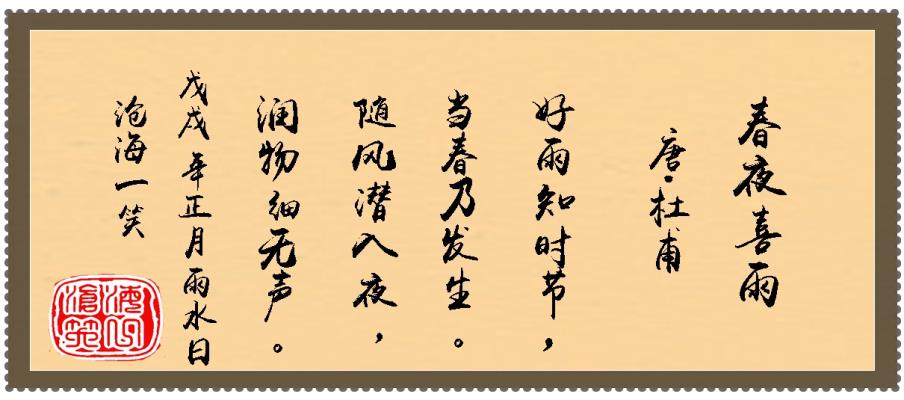 春夜喜雨
唐·杜甫
好雨知时节，
当春乃发生。
随风潜入夜，
润物细无声。
戊戌年正月雨水日
沧海一笑